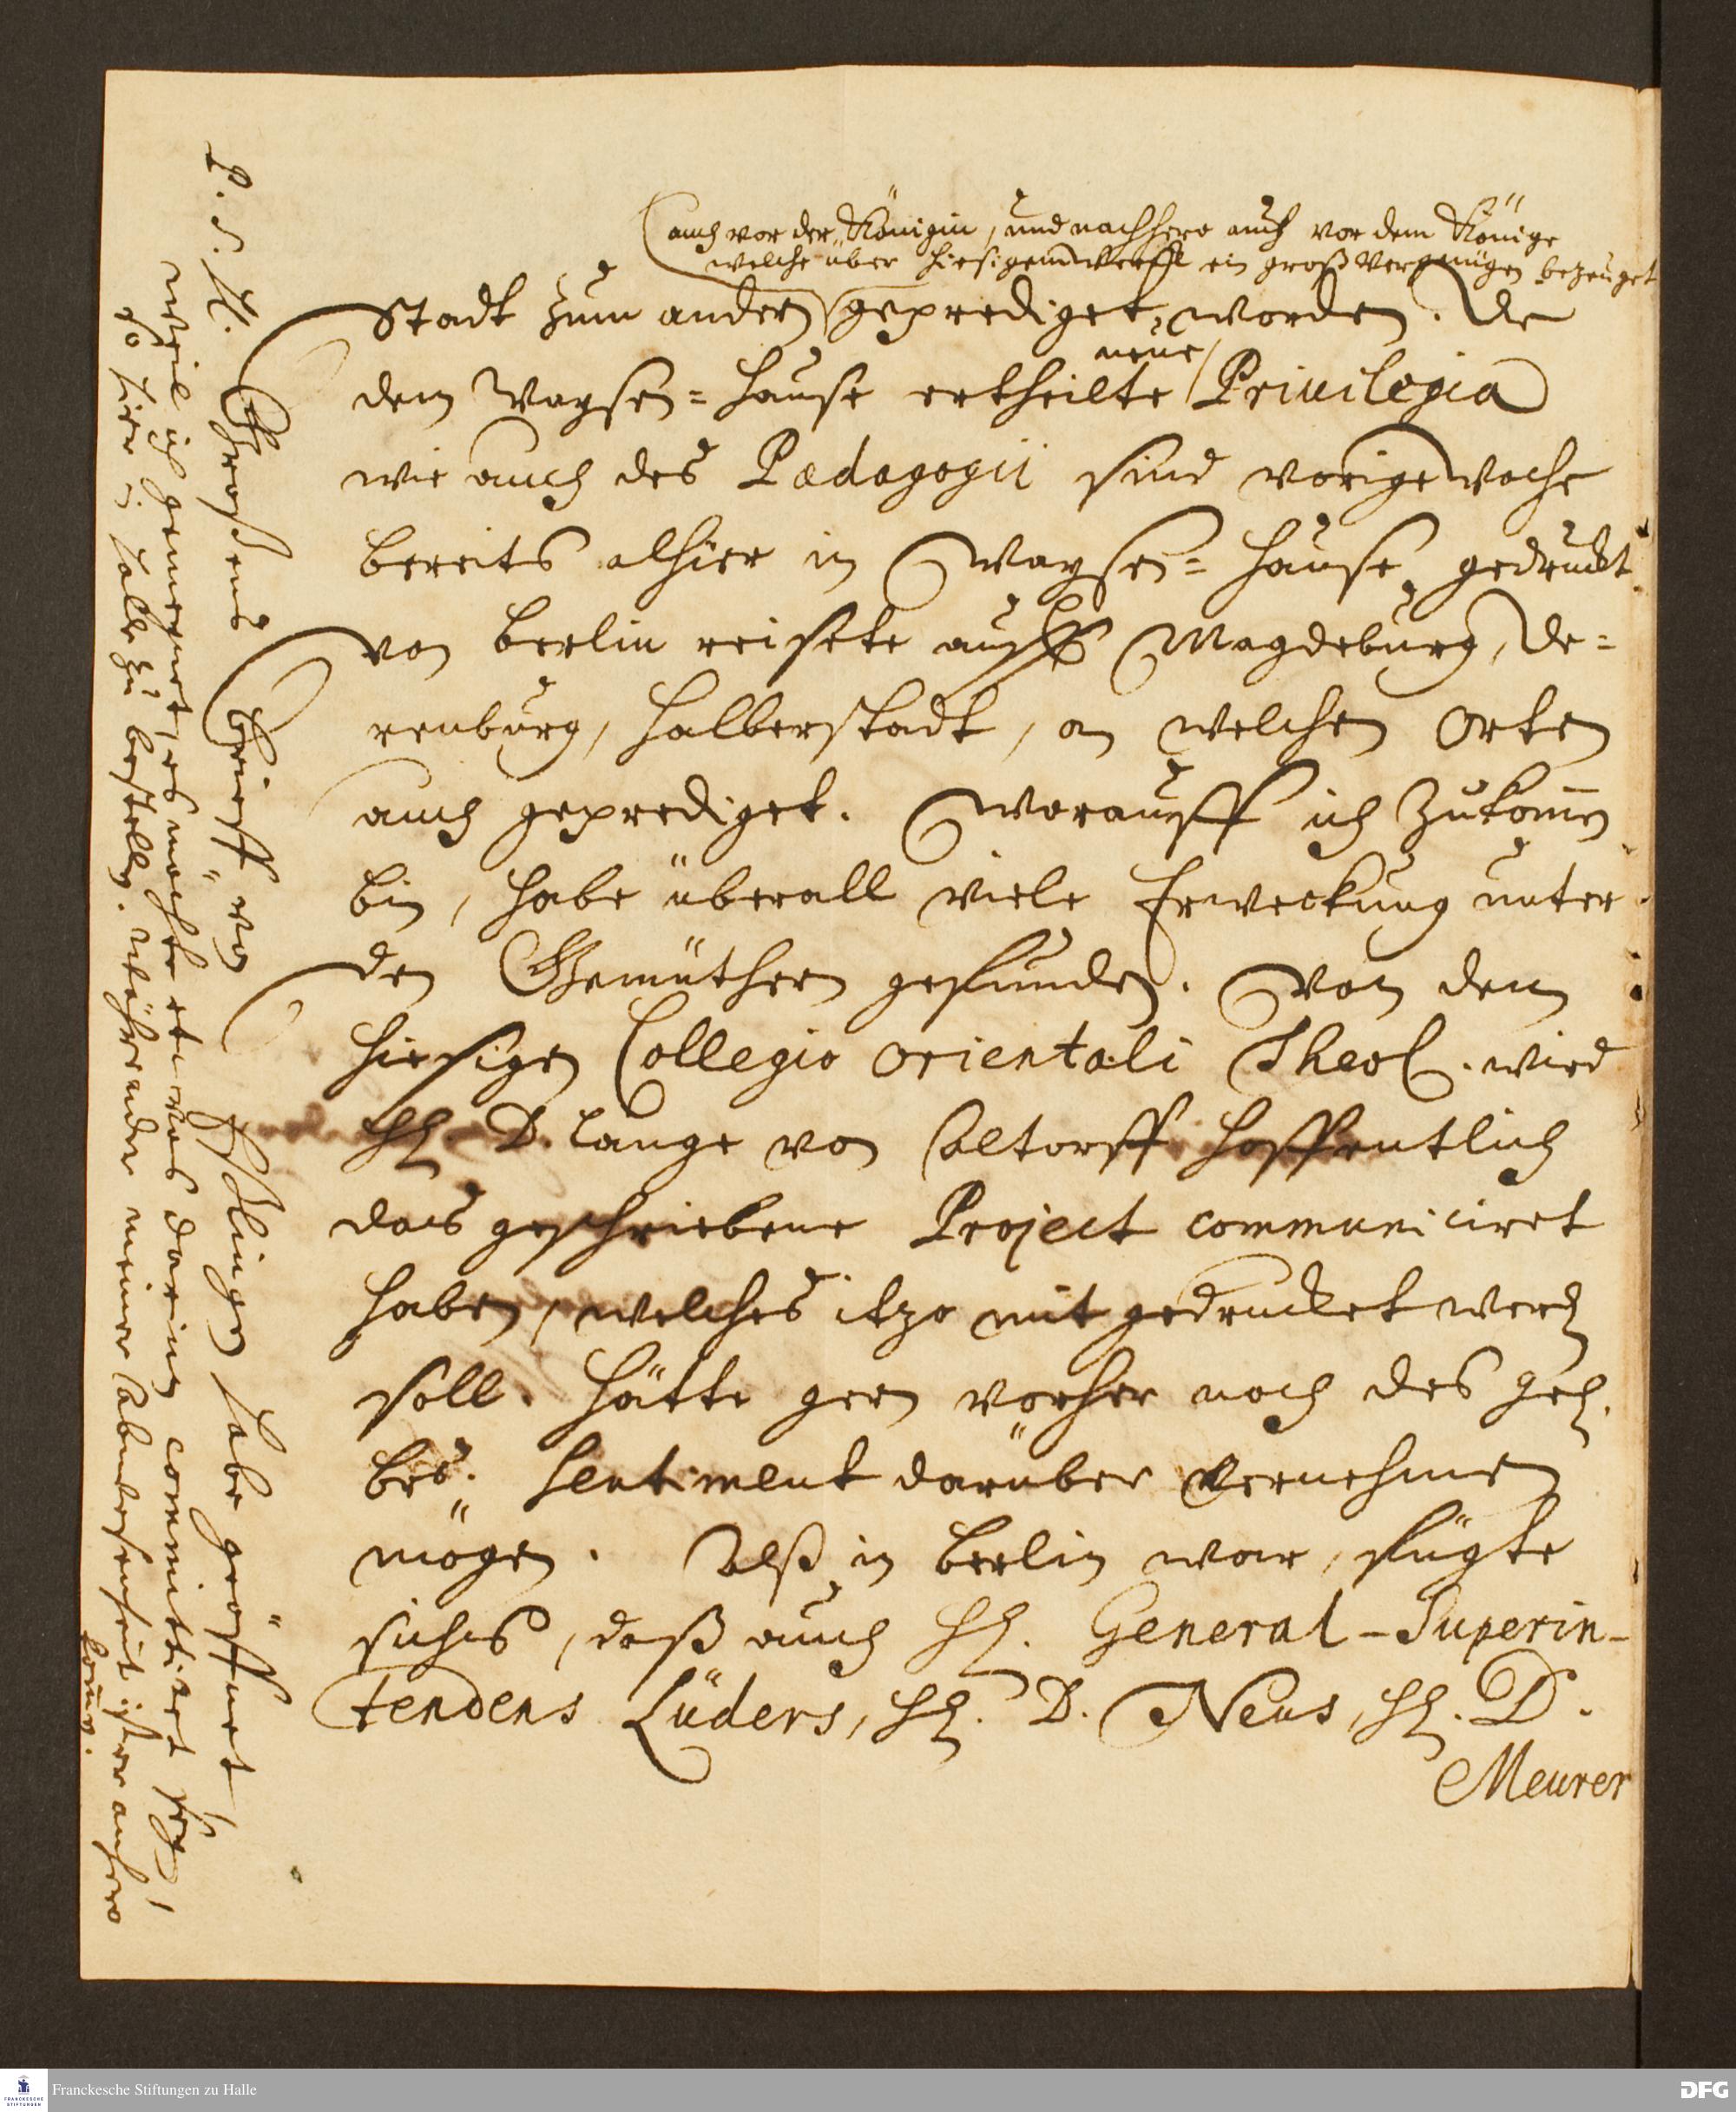 auch vor der Königin, und nachhero auch vor dem Könige
welche über hiesigem Werck ein groß Vergnügen bezeuget
Stadt zum andern geprediget worden. Die
dem Waysen-Hause ertheilte neue Privilegia
wie auch des Pædagogii sind vorige Woche
bereits alhier in Waysen-Hause gedruckt
von Berlin reisete auff Magdeburg, De-
renburg, Halberstadt, an welchen Orten
auch geprediget. Worauff ich zukom̄en
bin, habe überall viele Erweckung unter
den Gemüthern gefunden. Von dem
hiesigen Collegio Orientali Theol. wird
H. D. Lange von Altorff hoffentlich
das geschriebene Project communiciret
haben, welches itzo mit gedrucket werden
soll. Hätte gern vorher noch des gel.
Brs. Sentiment darüber vernehmen
mögen. Alß in Berlin war, fügte
sichs, daß auch H. General-Superin-
tendens Lüders, H. D. Neus, H. D.
Meurer
P. S. H. Großens Brieff von Eßlingen habe geöffnet,
weil ich gemeynet, es möchte etwas darinn committiret seyn,
so hier in Halle zu bestellen. Währender meiner Abwesenheit ist er anhero
kom̄en.
Franckesche Stiftungen zu Halle
FRANCKESCHE STIFTUNGEN
DFG